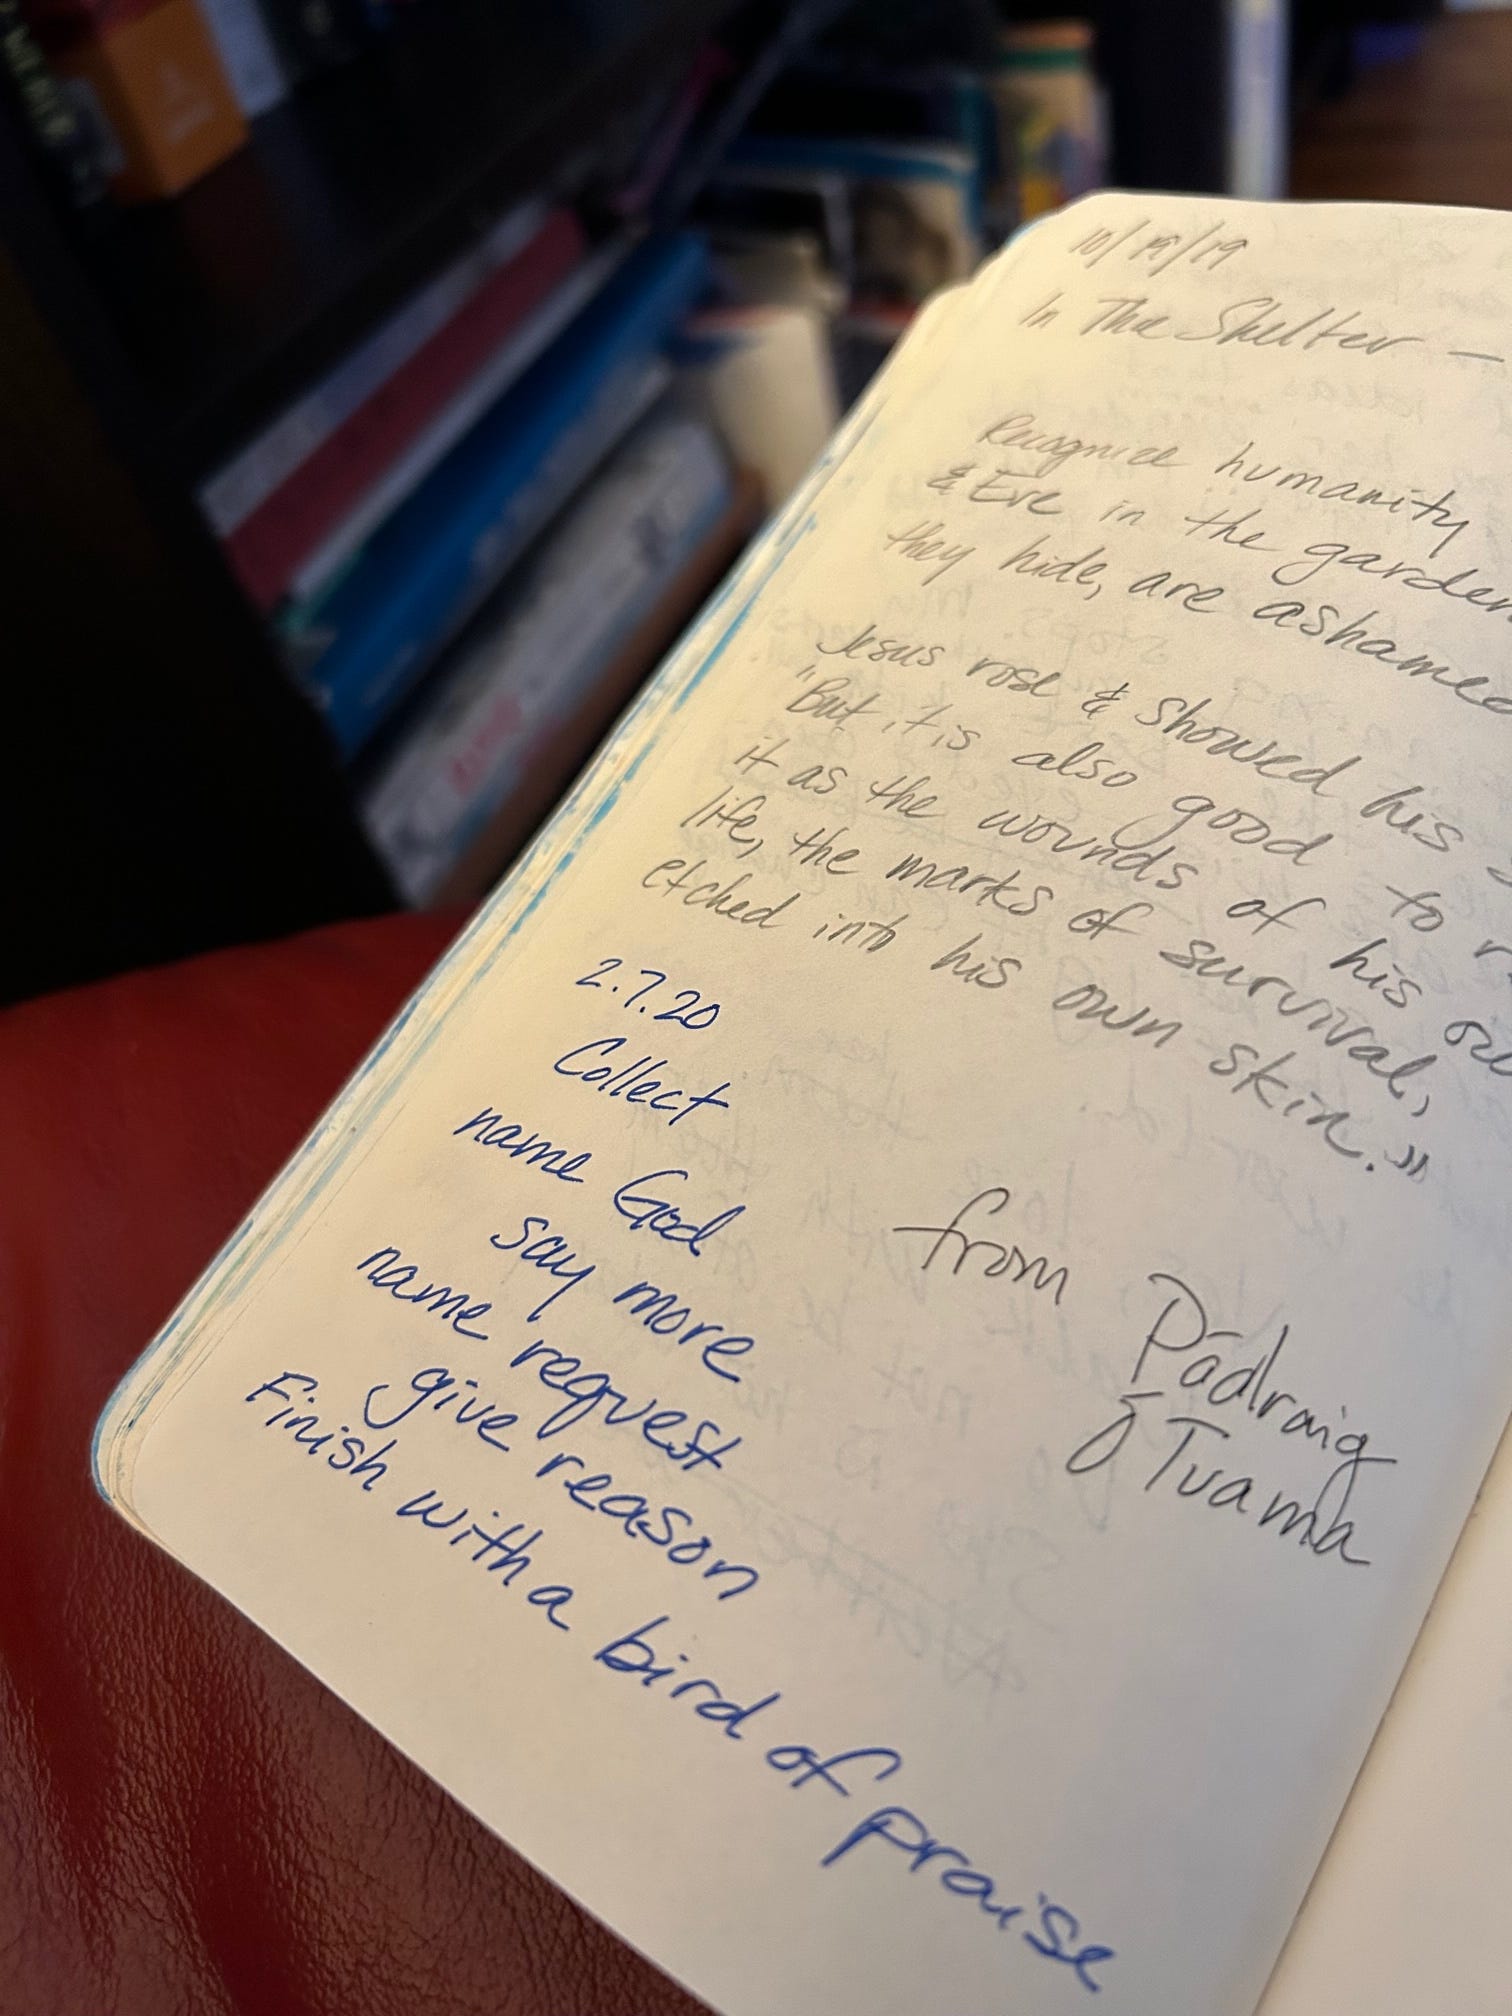 10/19/19
In The Shelter —
Recognize humanity
& Eve in the garden
they hide, are ashamed
Jesus rose & showed his
"But it is also good to
it as the wounds of his
life, the marks of survival,
etched into his own skin."
from Pádraig
Ó Tuama
2.7.20
Collect
name God
say more
name request
give reason
Finish with a bird of praise